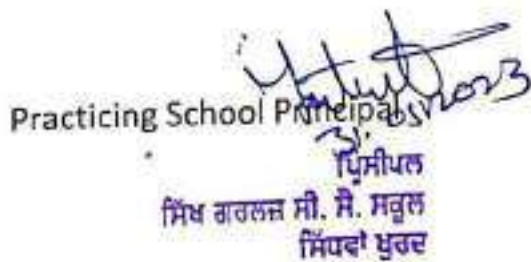 Practicing School Principal
ਪ੍ਰਿੰਸੀਪਲ
ਸਿੱਖ ਗਰਲਜ਼ ਸੀ. ਸੈ. ਸਕੂਲ
ਸਿੱਧਵਾਂ ਖੁਰਦ